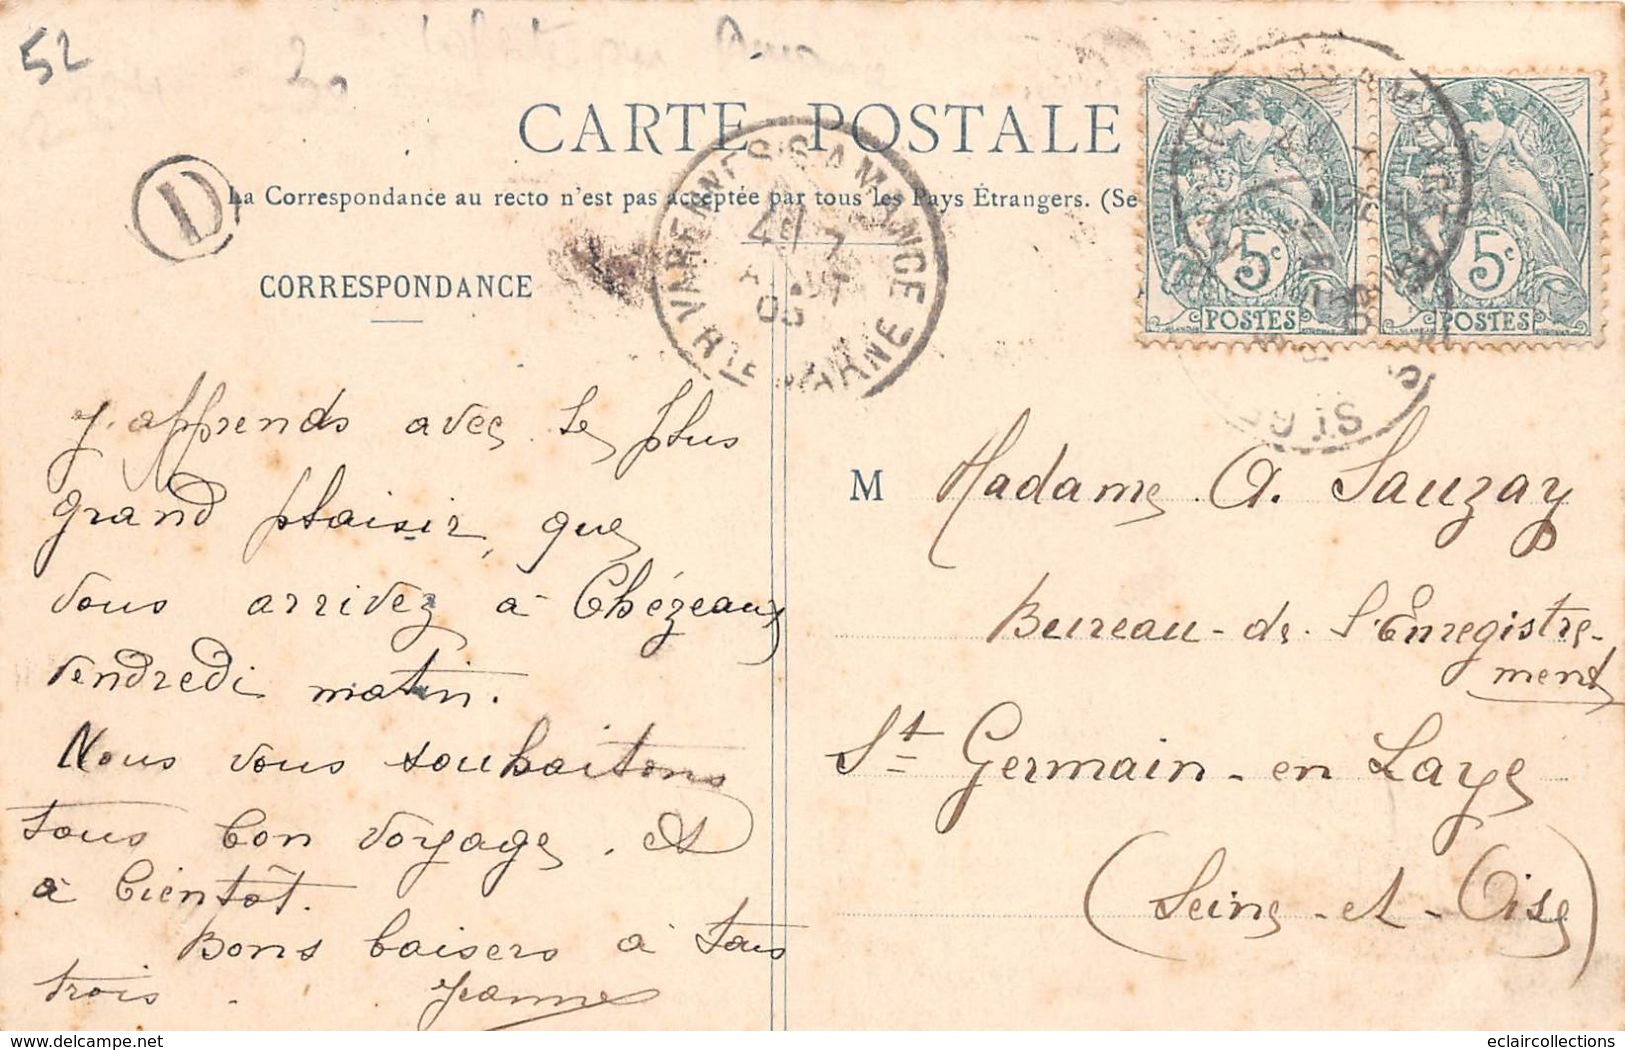 52
30
CARTE POSTALE
D
La Correspondance au recto n'est pas acceptée par tous les Pays Étrangers. (Se
VARENNES S AMANCE
4E 7
AOUT
05
HTE MARNE
5c
POSTES
5c
POSTES
CORRESPONDANCE
J'apprends avec le plus
grand plaisir, que
vous arrivez à Chézeaux
vendredi matin.
Nous vous souhaitons
tous bon voyage, et
à bientôt.
Bons baisers à tous
trois. Jeanne
M Madame A. Sauzay
Bureau de l'Enregistre-
ment
St Germain-en Laye
(Seine-et-Oise)
www.delcampe.net
eclaircollections